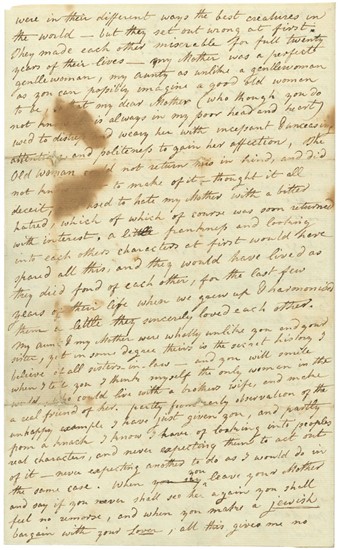 were in their different ways the best creatures in
the world — but they set out wrong at first.
They made each other miserable for full twenty
years of their lives — my Mother was a perfect
gentlewoman, my aunty as unlike a gentlewoman
as you can possibly imagine a good old woman
to be, that my dear Mother (who though you do
not is always in my poor head and heart)
used to distress and weary her with incessant & unceasing
attention and politeness to gain her affection, The
Old woman could not return this in kind, and did
not to make of it — thought it all
deceit, used to hate my Mother with a bitter
hatred, which of which of course was soon returned
with interest, a little frankness and looking
into each others characters at first would have
spared all this, and they would have lived as
they died fond of each other, for the last few
years of their life when we grew up & harmonised
them a little they sincerely loved each other.
My aunt & my Mother were wholly unlike you and your
sister, yet in some degree theirs is the secret history I
believe of all sisters-in-law — and you will smile
when I tell you I think myself the only woman in the
world who could live with a brothers wife, and make
a real friend of her. partly from early observation of the
unhappy example I have just given you, and partly
from a knack I know I have of looking into peoples
real characters, and never expecting them to act out
of it — never expecting another to do as I would do in
the same case. When you leave your Mother
and say if you never shall see her again you shall
feel no remorse, and when you make a jewish
bargain with your Lover, all this gives me no